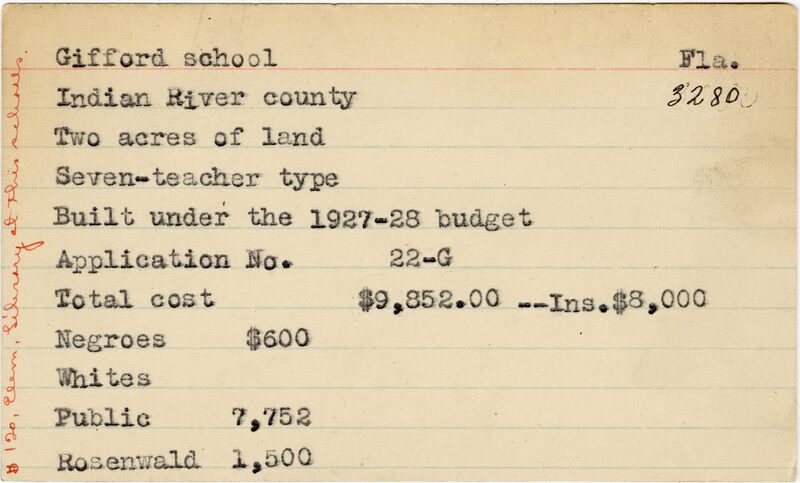 Gifford school Fla.
Indian River county 3280
Two acres of land
Seven-teacher type
Built under the 1927-28 budget
Application No. 22-G
Total cost $9,852.00 --Ins.$8,000
Negroes $600
Whites
Public 7,752
Rosenwald 1,500
$120, Elem, Library at this school.